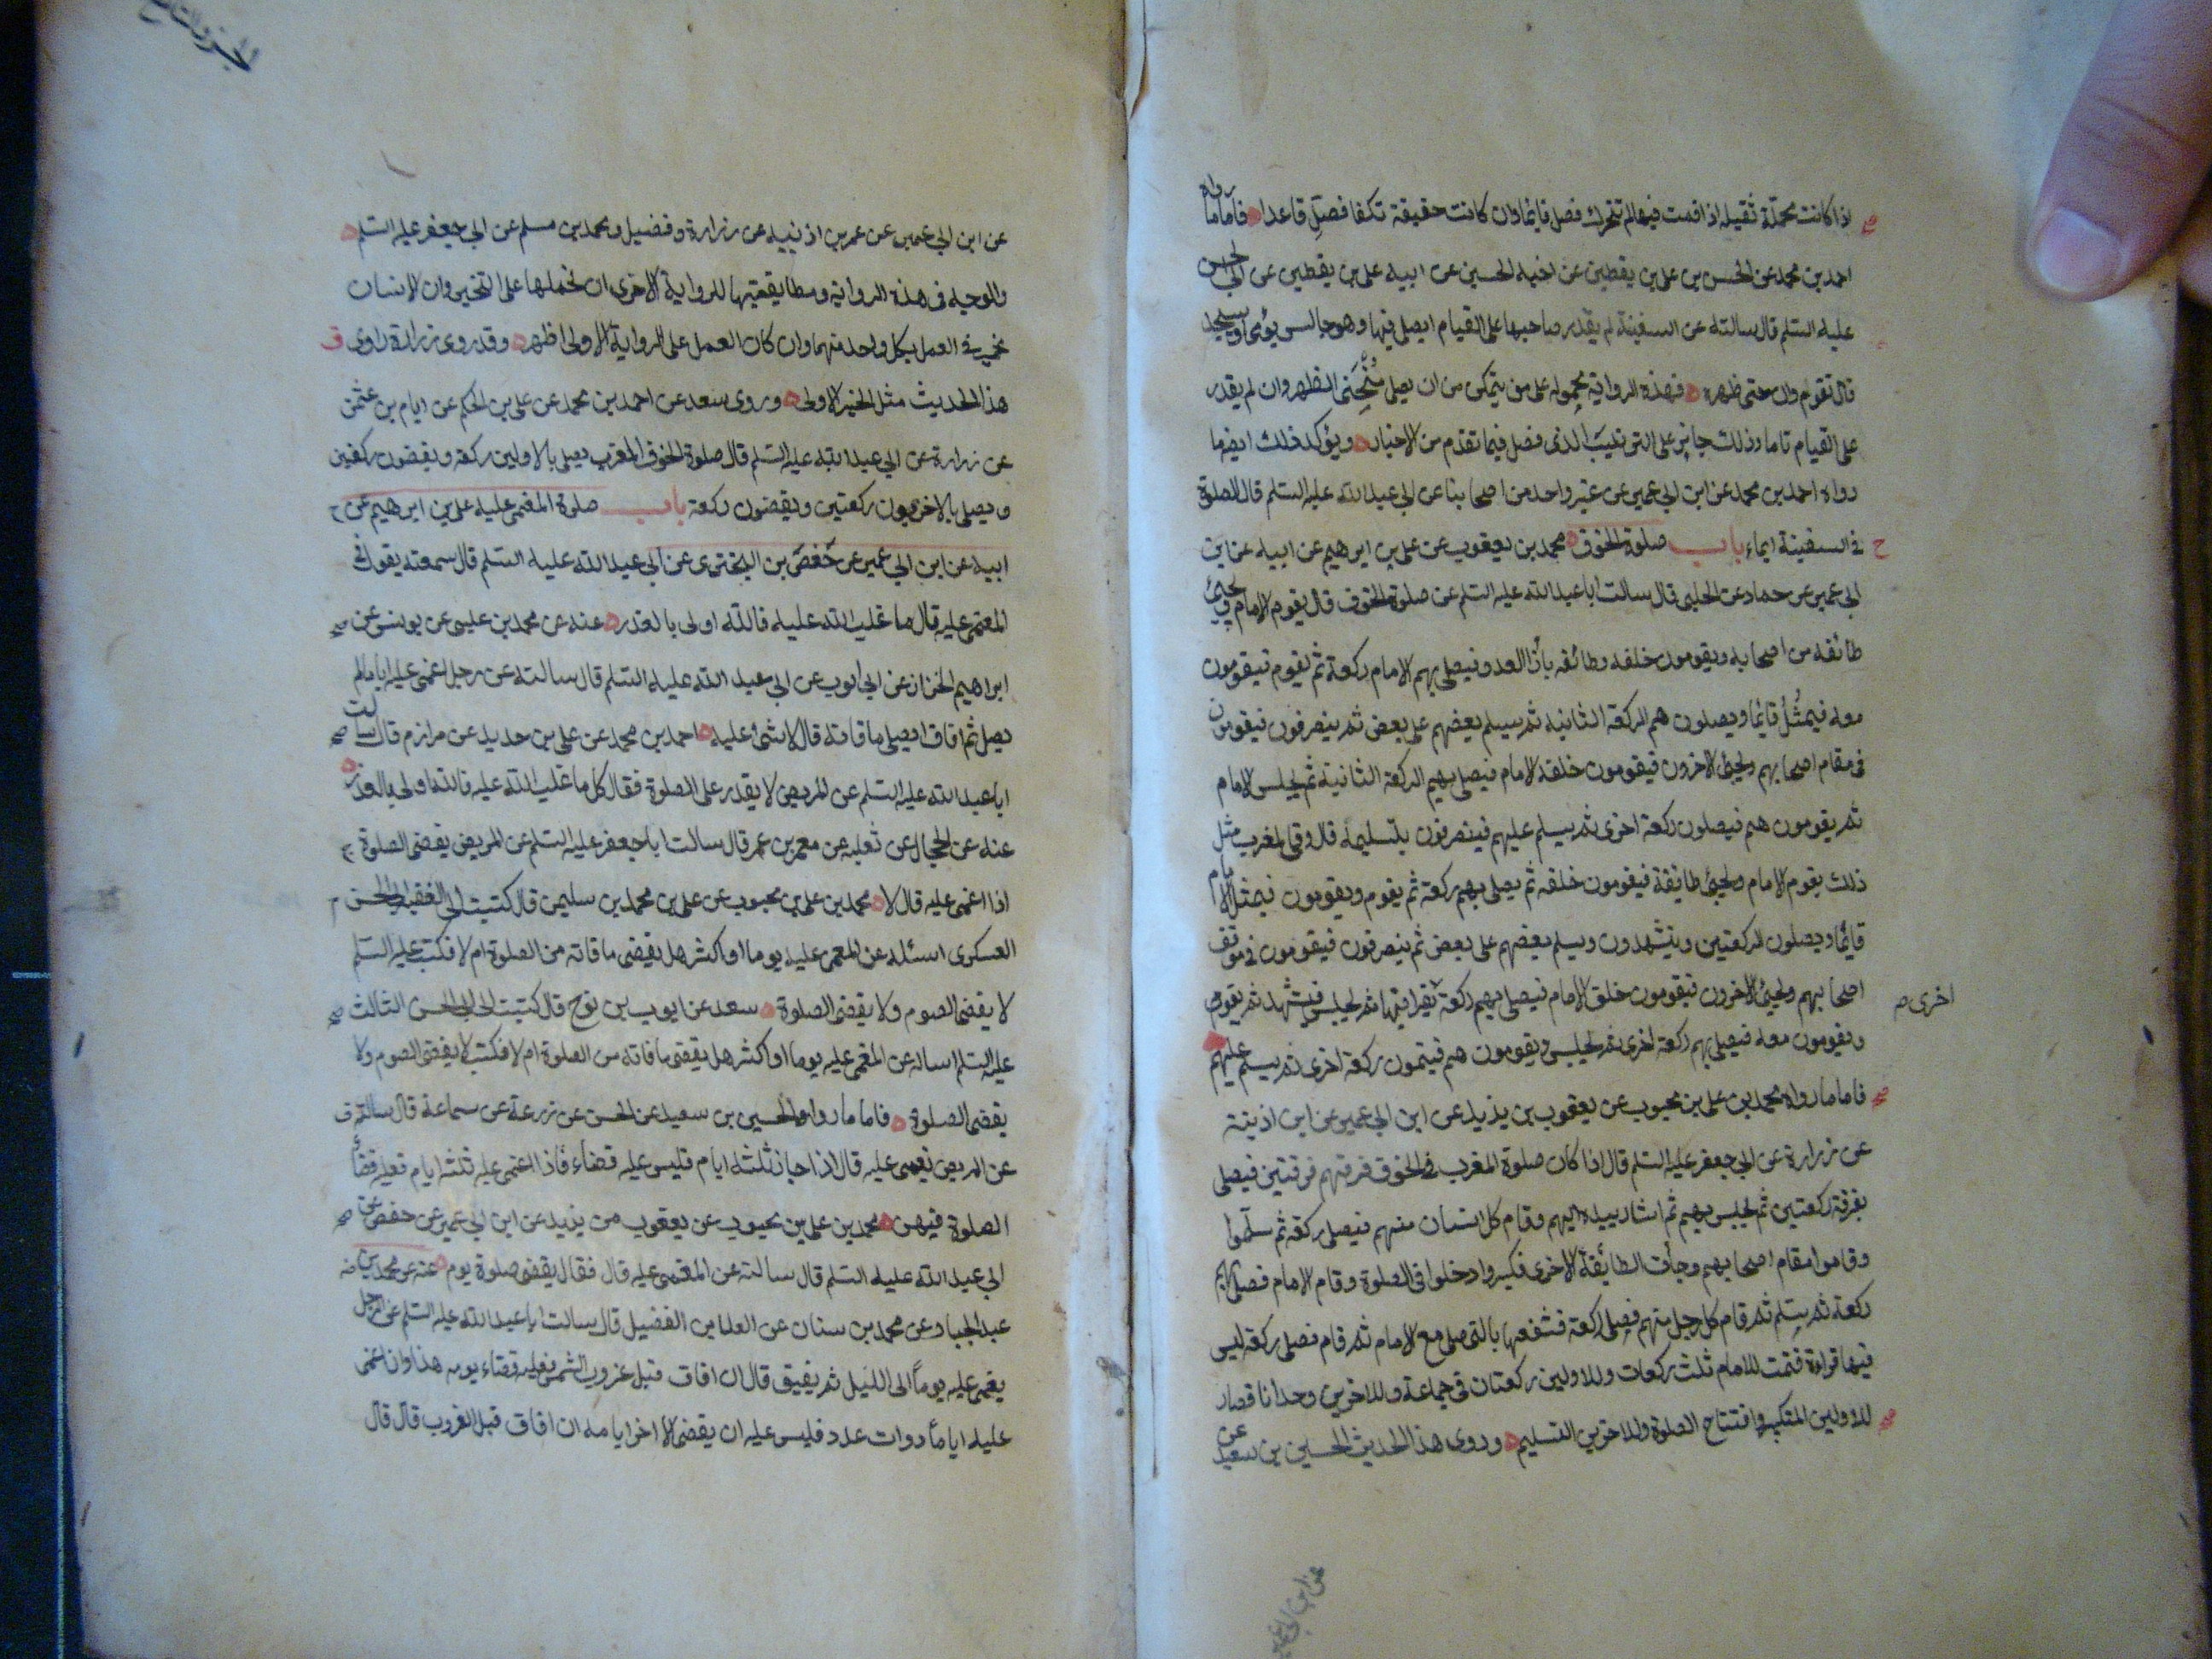 اذا كانت محملة ثقيلة اذا قمت فيها لم تتحرك فصل قايما وان كانت خفيفة تكفا فصل قاعدا فاما ما رواه
احمد بن محمد عن الحسن بن على بن يقطين عن اخيه الحسين عن ابيه على بن يقطين عن ابى الحسن
عليه السلم قال سالته عن السفينة لم يقدر صاحبها على القيام ايصلى فيها وهو جالس يومى او يسجد
قال تقوم وان حنى ظهره فهذه الرواية محمولة على من يتمكن من ان يصلى منحنى الظهر وان لم يقدر
على القيام تاما وذلك جايز على الترتيب الذى فصل فيما تقدم من الاخبار ويؤكد ذلك ايضا ما
رواه احمد بن محمد عن ابن ابى عمير عن غير واحد من اصحابنا عن ابى عبد الله عليه السلم قال الصلوة
فى السفينة ايماء باب صلوة الخوف محمد بن يعقوب عن على بن ابرهيم عن ابيه عن ابن
ابى عمير عن حماد عن الحلبى قال سالت ابا عبد الله عليه السلم عن صلوة الخوف قال يقوم الامام ويجئ
طائفة من اصحابه ويقومون خلفه وطائفة بازا العدو فيصلى بهم الامام ركعة ثم يقوم فيقومون
معه فيمثل قايما ويصلون هم الركعة الثانيه ثم يسلم بعضهم على بعض ثم ينصرفون فيقومون
فى مقام اصحابهم ويجئ الاخرون فيقومون خلف الامام فيصلى بهم الركعة الثانية ثم يجلس الامام
ثم يقومون هم فيصلون ركعة اخرى ثم يسلم عليهم فينصرفون بتسليمة قال وفى المغرب مثل
ذلك يقوم الامام ويجئ طائفة فيقومون خلفه ثم يصلى بهم ركعة ثم يقوم ويقومون فيمثل الامام
قائما ويصلون الركعتين ويتشهدون ويسلم بعضهم على بعض ثم ينصرفون فيقومون فى موقف
اصحابهم ويجئ الاخرون فيقومون خلف الامام فيصلى بهم ركعة يقرا فيها ثم يجلس فيتشهد ثم يقوم
اخرى
ويقومون معه فيصلى بهم ركعة اخرى ثم يجلس ويقومون هم فيتمون ركعة اخرى ثم يسلم عليهم
فاما ما رواه محمد بن على بن محبوب عن يعقوب بن يزيد عن ابن ابى عمير عن ابن اذينة
عن زرارة عن ابى جعفر عليه السلم قال اذا كان صلوة المغرب فى الخوف فرقهم فرقتين فيصلى
بفرقة ركعتين ثم يجلس بهم ثم اشار بيده اليهم وقام كل انسان منهم فيصلى ركعة ثم سلموا
وقاموا مقام اصحابهم وجأت الطائفة الاخرى فكبروا ودخلوا فى الصلوة وقام الامام فصلى بهم
ركعة ثم يسلم ثم قام كل رجل منهم فصلى ركعة فشفعها بالتى صلى مع الامام ثم قام فصلى ركعة ليس
فيها قراءة فتمت للامام ثلث ركعات وللاولين ركعتان فى جماعة وللاخرين وحدانا فصار
للاولين التكبير وافتتاح الصلوة وللاخرين التسليم وروى هذا الحديث الحسين بن سعيد عن
عن ابن ابى عمير
عن ابن ابى عمير عن عمر بن اذنيه عن زرارة وفضيل ومحمد بن مسلم عن ابى جعفر عليه السلم
والوجه فى هذه الرواية ومطابقتها للرواية الاخرى ان نحملها على التخيير وان الانسان
مخير فى العمل بكل واحد منهما وان كان العمل على الرواية الاولى اظهر وقد روى زرارة راوى
هذا الحديث مثل الخبر الاولى وروى سعد عن احمد بن محمد عن على بن الحكم عن ابان بن عثمن
عن زرارة عن ابى عبد الله عليه السلم قال صلوة الخوف المغرب يصلى بالاولين ركعة ويقضون ركعتين
ويصلى بالاخريون ركعتين ويقضون ركعة باب صلوة المغمى عليه على بن ابرهيم عن
ابيه عن ابن ابى عمير عن حفص بن البخترى عن ابى عبد الله عليه السلم قال سمعته يقول فى
المغمى عليه قال ما غلب الله عليه فالله اولى بالعذر عنه عن محمد بن عيسى عن يونس عن
ابراهيم الخزاز عن ابى ايوب عن ابى عبد الله عليه السلم قال سالته عن رجل اغمى عليه اياما لم
يصل ثم افاق ايصلى ما فاته قال لا شئ عليه احمد بن محمد عن على بن حديد عن مرازم قال سالت
ابا عبد الله عليه السلم عن المريض لا يقدر على الصلوة فقال كل ما غلب الله عليه فالله اولى بالعذر
عنه عن الحجال عن ثعلبه عن معمر بن عمر قال سالت ابا جعفر عليه السلم عن المريض يقضى الصلوة
اذا اغمى عليه قال لا محمد بن على بن محبوب عن على بن محمد بن سليمن قال كتبت الى الفقيه ابى الحسن
العسكرى اسئله عن المغمى عليه يوما او اكثر هل يقضى ما فاته من الصلوة ام لا فكتب عليه السلم
لا يقضى الصوم ولا يقضى الصلوة سعد عن ايوب بن نوح قال كتبت الى ابى الحسن الثالث
عليه السلم اساله عن المغمى عليه يوما او اكثر هل يقضى ما فاته من الصلوة ام لا فكتب لا يقضى الصوم ولا
يقضى الصلوة فاما ما رواه الحسين بن سعيد عن الحسن عن زرعة عن سماعة قال سالته
عن المريض يغمى عليه قال اذا جاز ثلثة ايام فليس عليه قضاء فاذا اغمى عليه ثلثه ايام فعليه قضأ
الصلوة فيهن محمد بن على بن محبوب عن يعقوب بن يزيد عن ابن ابى عمير عن حفص عن
ابى عبد الله عليه السلم قال سالته عن المغمى عليه قال فقال يقضى صلوة يوم عنه عن محمد بن
عبد الجبار عن محمد بن سنان عن العلا بن الفضيل قال سالت ابا عبد الله عليه السلم عن الرجل
يغمى عليه يوماً الى الليل ثم يفيق قال ان افاق قبل غروب الشمس فعليه قضاء يومه هذا وان اغمى
عليه اياماً ذوات عدد فليس عليه ان يقضى الا اخر ايامه ان افاق قبل الغروب قال قال